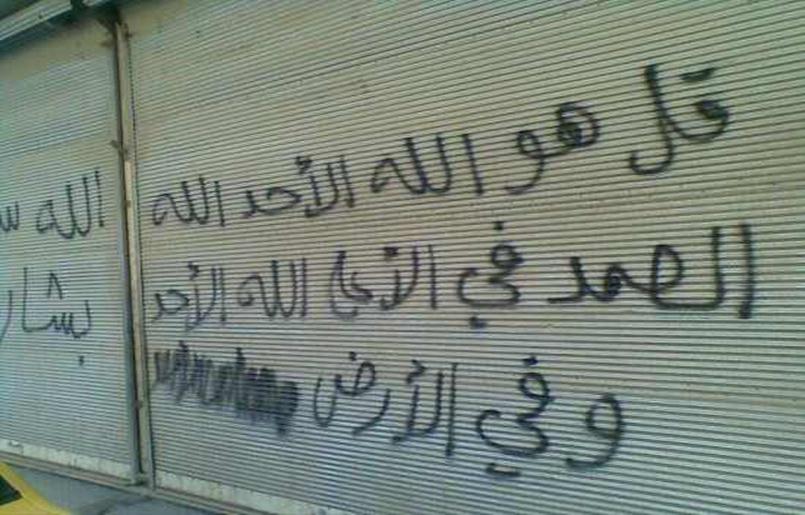 قل هو الله الأحد الله
الصمد في الأزل الله الأحد
و في الأرض
الله
بشار